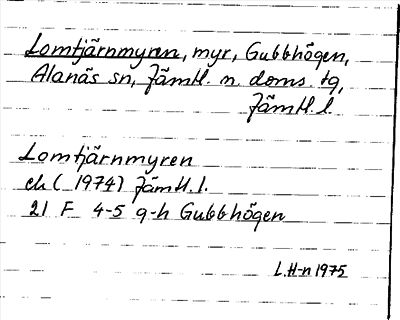 Lomtjärnmyren, myr, Gubbhögen,
Alanäs sn, Jämtl. n. doms. tg,
Jämtl. l.
Lomtjärnmyren
ek ( 1974) Jämtl. l.
21 F 4-5 g-h Gubbhögen
L.H-n 1975